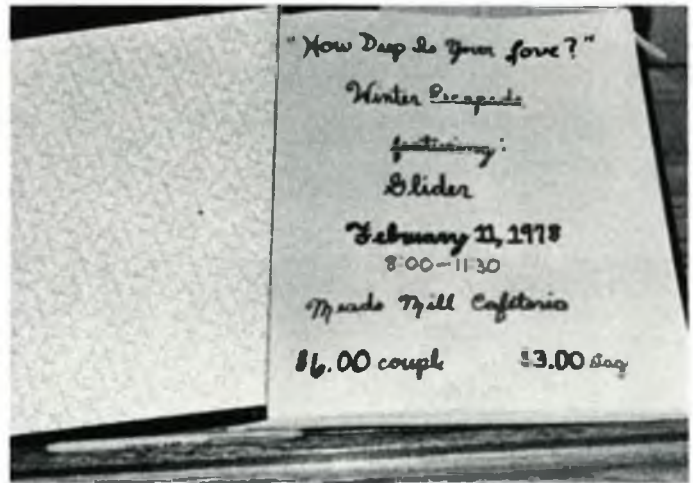 "How Deep Is Your Love?"
Winter Escapade
featuring:
Glider
February 11, 1978
8:00-11:30
Meade Mill Cafeteria
$6.00 couple $3.00 stag